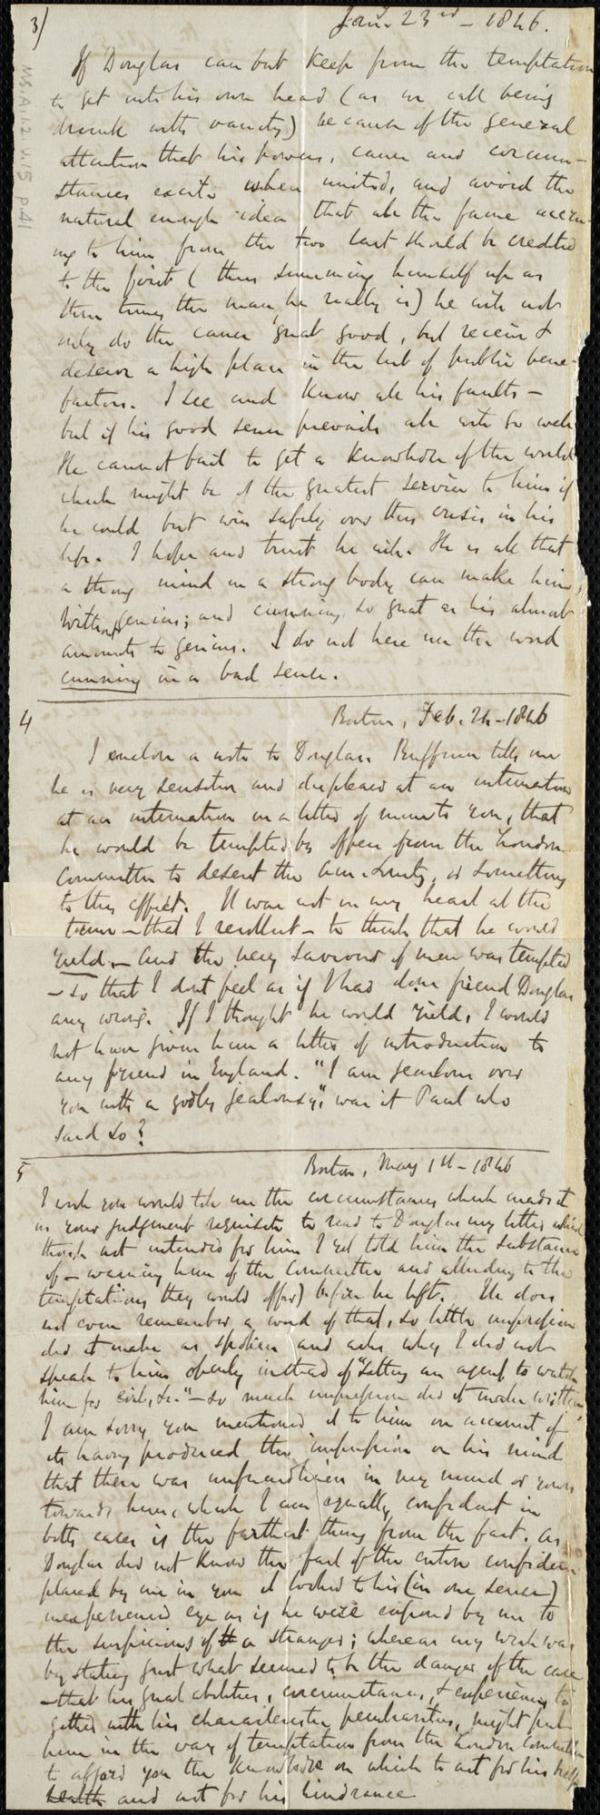 3)
Jan. 23rd - 1846.
If Douglas can but keep from the temptation
to get into his own head (as we call being
drunk with vanity) because of the general
attention that his powers, cause and circum-
stances excite when united, and avoid the
natural enough idea that all the fame accru-
ing to him from the two last should be credited
to the first (thus summing himself up as
three times the man he really is) he will not
only do the cause great good, but receive &
deserve a high place in the list of public bene-
factors. I see and know all his faults -
but if his good sense prevails all will go well.
He cannot fail to get a knowledge of the world
which might be of the greatest service to him if
he could but win safely over this crisis in his
life. I hope and trust he will. He is all that
a strong mind in a strong body can make him,
without genius; and cunning so great as his almost
amounts to genius. I do not here use the word
cunning in a bad sense.
4
Boston, Feb. 24-1846
I enclose a note to Douglas. Buffum tells me
he is very sensitive and displeased at an intimation
at an intimation in a letter of mine to you, that
he would be tempted by offers from the London
Committee to desert the Am. Society, or something
to this effect. It was not in my heart at the
time - that I recollect - to think that he would
yield. - And the very Saviour of men was tempted
- so that I dont feel as if I had done friend Douglas
any wrong. If I thought he would yield, I would
not have given him a letter of introduction to
any friend in England. "I am jealous over
you with a godly jealousy", was it Paul who
said so?
5
Boston, May 1st - 1846
I wish you would tell me the circumstances which made it
in your judgement requisite to read to Douglas my letter which
though not intended for him I yet told him the substance
of - warning him of the Committee and alluding to the
temptations they would offer) before he left. He does
not even remember a word of that, so little impression
did it make as spoken and asks why I did not
speak to him openly instead of "setting an agent to watch
him for evil, &c." - so much impression did it make written
I am sorry you mentioned it to him on account of
its having produced the impression on his mind
that there was unfriendliness in my mind or yours
towards him, which I am equally confident in
both cases is the farthest thing from the fact. As
Douglas did not know the fact of the entire confidence
placed by me in you it looked to his (in one sense)
inexperienced eye as if he were exposed by me to
the suspicions of a stranger; whereas my wish was
by stating just what seemed to be the danger of the case
- that his great abilities, circumstances, & experience, to-
gether with his characteristic peculiarities, might put
him in the way of temptation from the London Committee
to afford you the knowledge on which to act for his help
health and not for his hindrance
MS.A.1.2 v.15 p.41